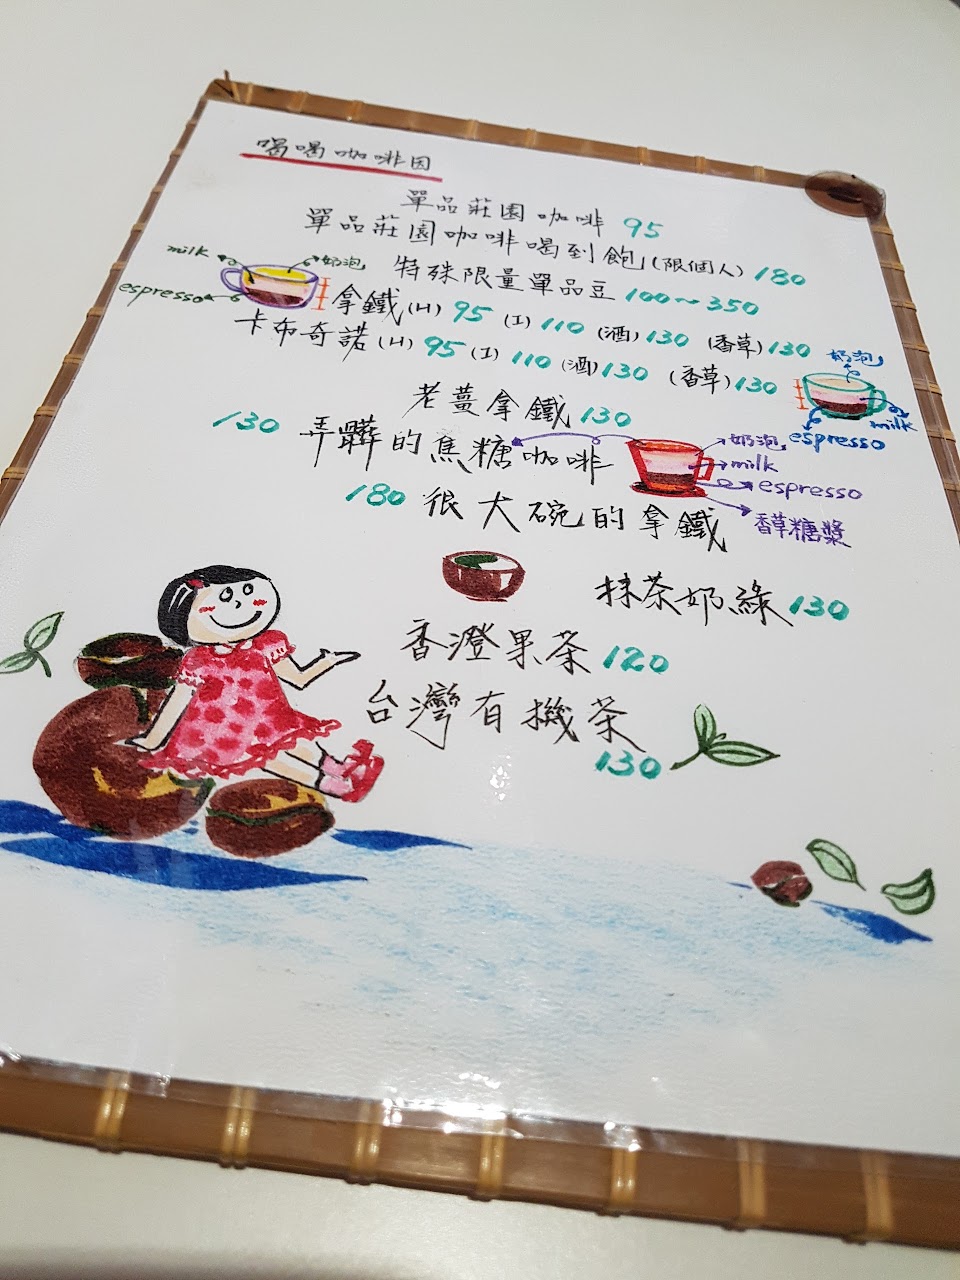 喝喝咖啡因
單品莊園咖啡 95
單品莊園咖啡喝到飽(限個人) 180
特殊限量單品豆 100~350
milk
奶泡
espresso
拿鐵(H) 95 (I) 110 (酒)130 (香草)130
卡布奇諾(H) 95 (I) 110 (酒)130 (香草)130
奶泡
milk
espresso
老薑拿鐵 130
130 弄髒的焦糖咖啡
奶泡
milk
espresso
香草糖漿
180 很大碗的拿鐵
抹茶奶綠 130
香澄果茶 120
台灣有機茶
130